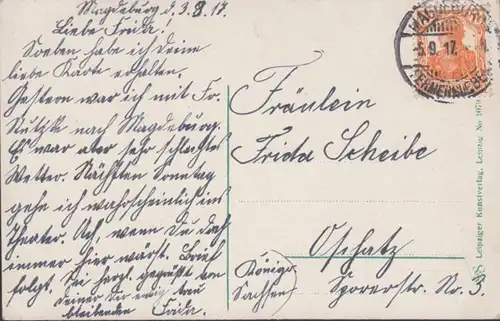 Magdeburg d. 3.9.17.
Liebe Frida!
Soeben habe ich Deine
liebe Karte erhalten.
Gestern war ich mit Fr.
nach Magdeburg.
Es war aber sehr schlechtes
Wetter. Nächsten Sonntag
gehe ich wahrscheinlich ins
Theater. Ach, wenn Du doch
immer hier wärst. Brief
folgt. Sei herzl. gegrüßt von
Deiner Dir ewig treu
bleibenden Frida.
Fräulein
Frida Scheibe
Oschatz
Königr.
Sachsen
Sporerstr. No. 3.
5.9.17.
Leipziger Kunstverlag, Leipzig No